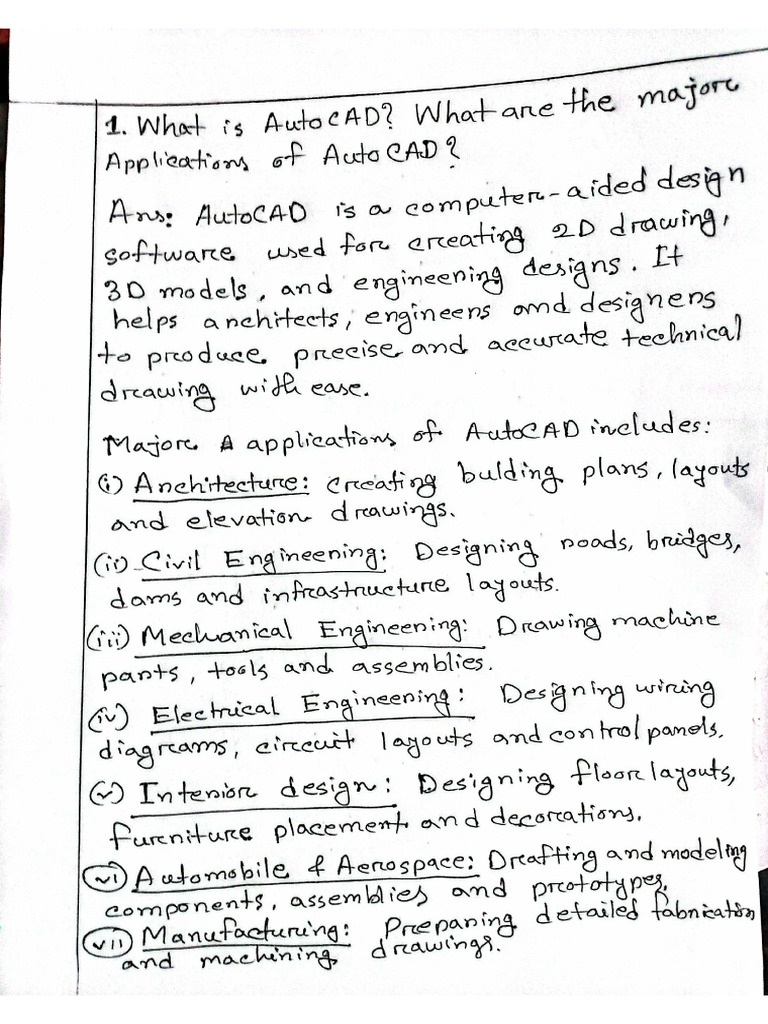 1. What is AutoCAD? What are the major
Applications of AutoCAD?
Ans: AutoCAD is a computer-aided design
software used for creating 2D drawing,
3D models, and engineering designs. It
helps architects, engineers and designers
to produce precise and accurate technical
drawing with ease.
Major A applications of AutoCAD includes:
(i) Architecture: creating bulding plans, layouts
and elevation drawings.
(ii) Civil Engineering: Designing roads, bridges,
dams and infrastructure layouts.
(iii) Mechanical Engineering: Drawing machine
parts, tools and assemblies.
(iv) Electrical Engineering: Designing wiring
diagrams, circuit layouts and control panels.
(v) Interior design: Designing floor layouts,
furniture placement and decorations.
(vi) Automobile & Aerospace: Drafting and modeling
components, assemblies and prototypes.
(vii) Manufacturing: Preparing detailed fabrication
and machining drawings.